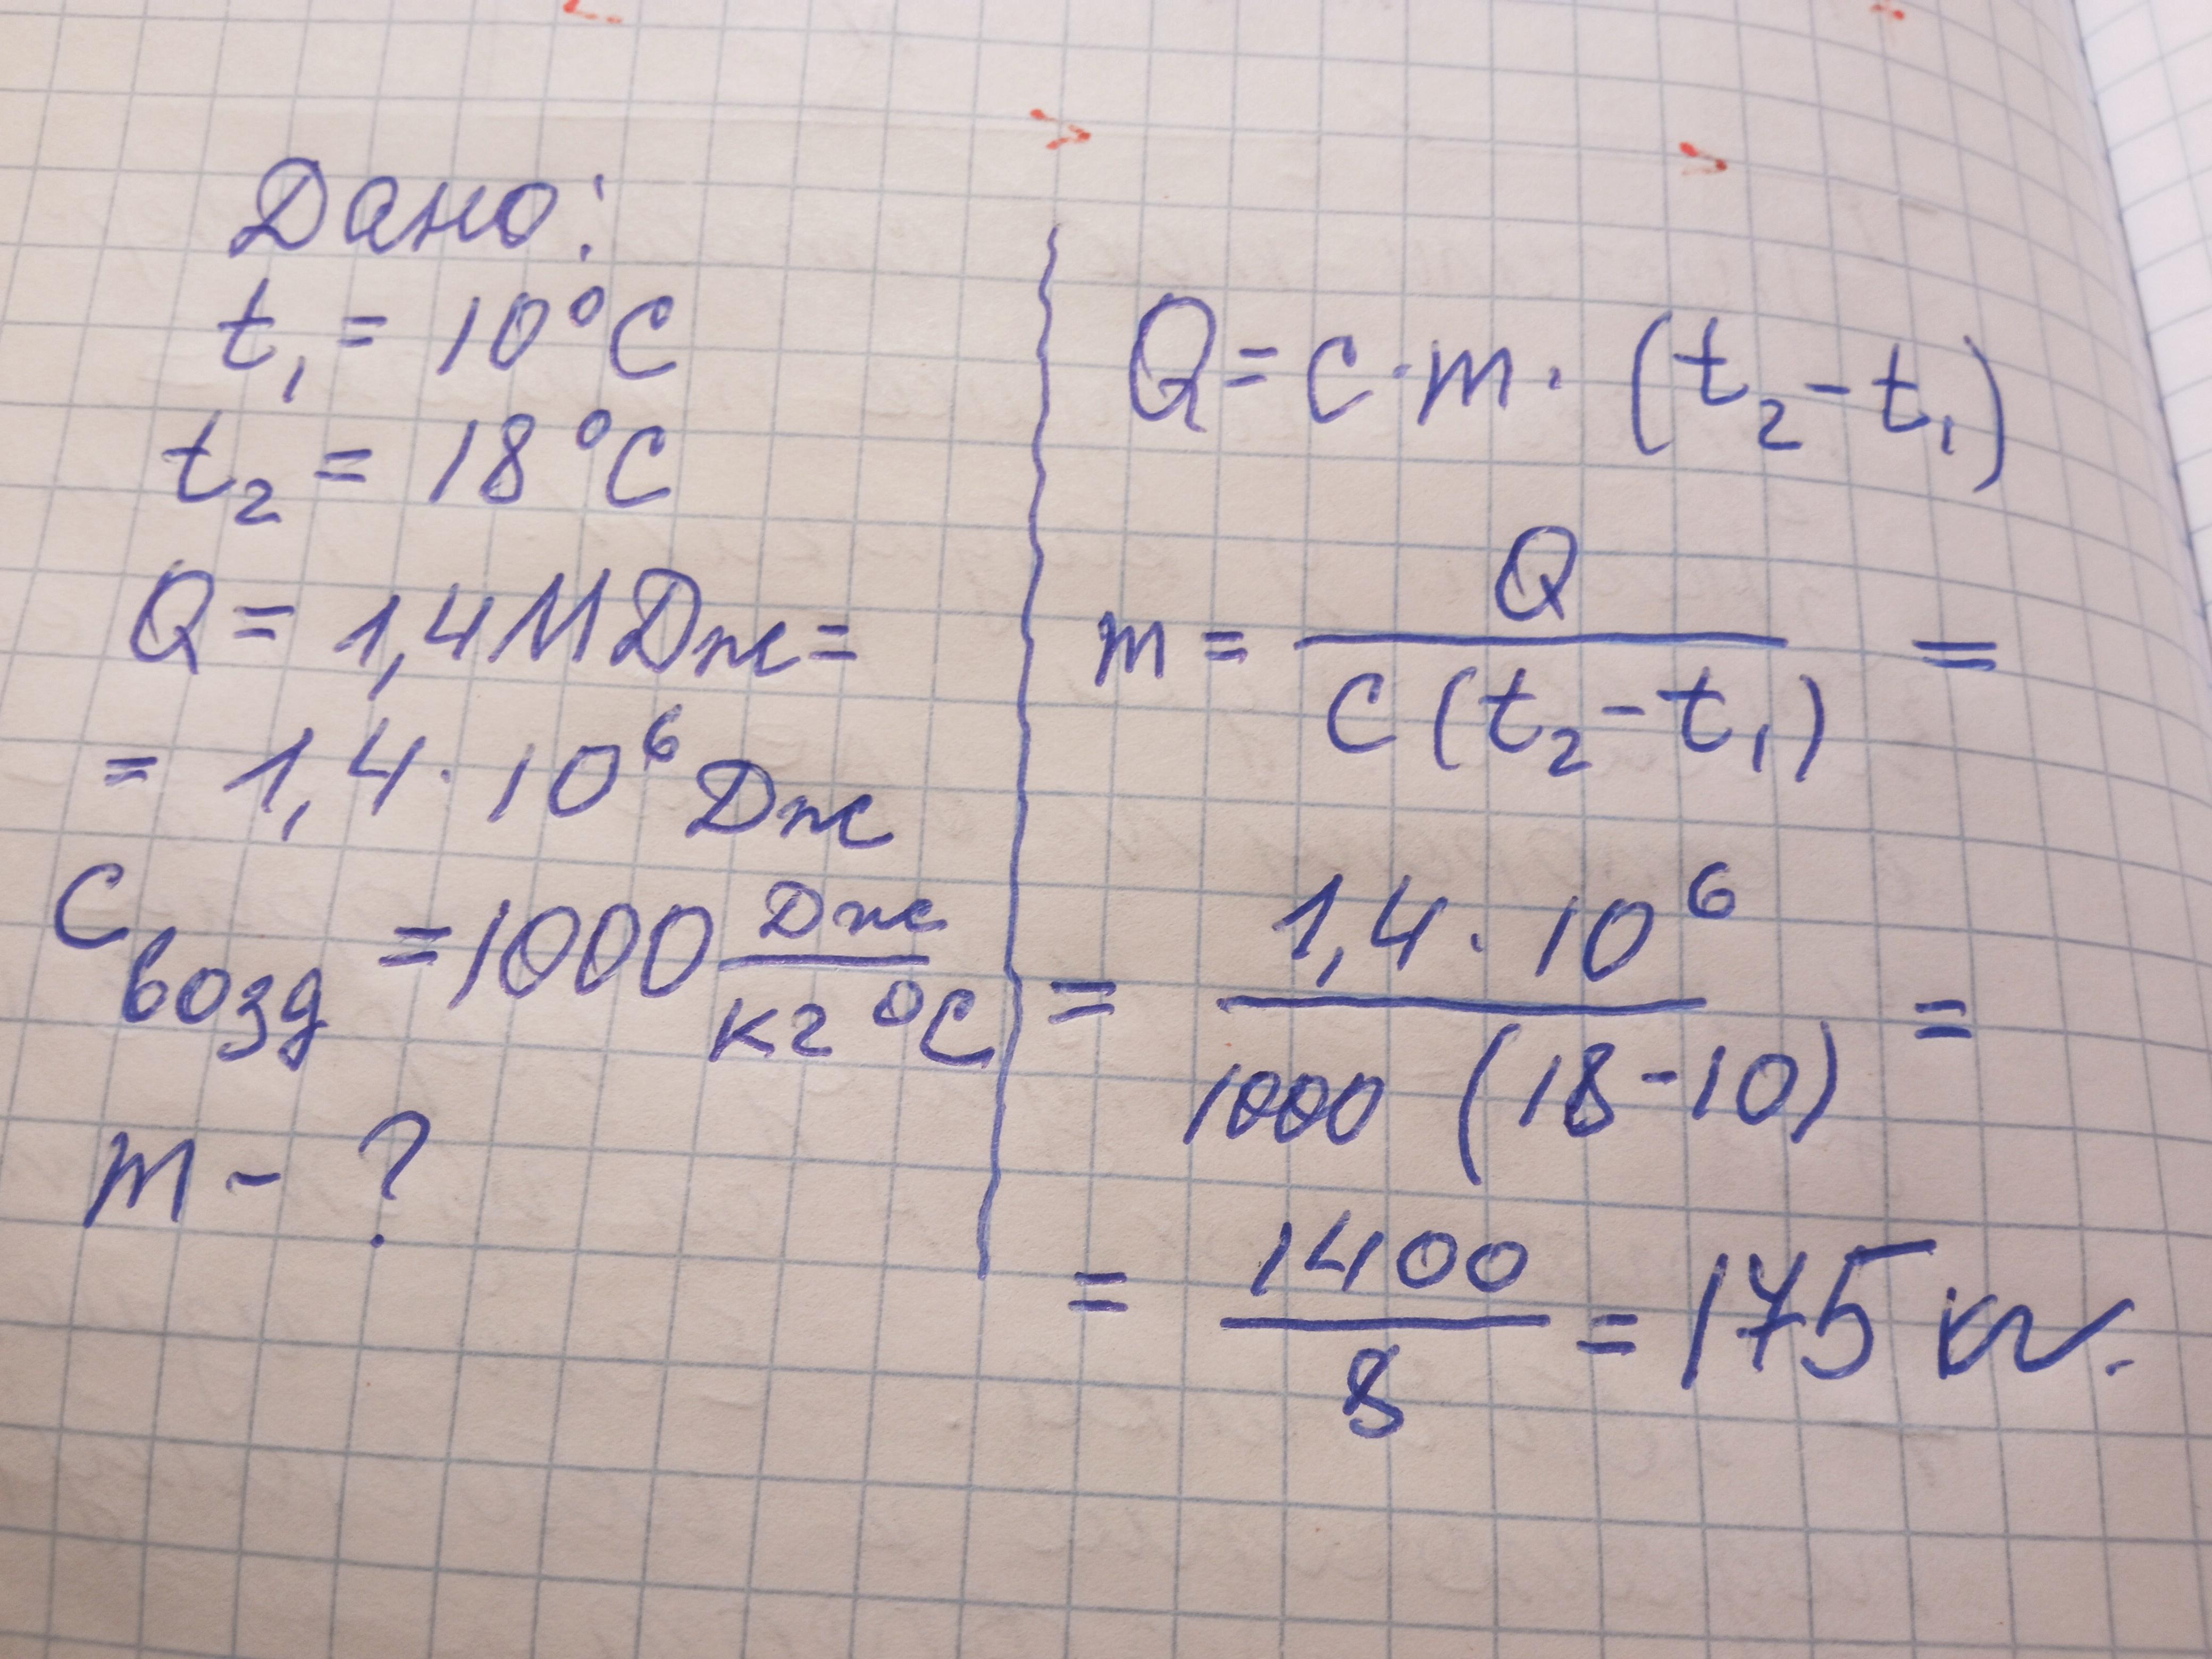 Дано:
t₁ = 10°C
t₂ = 18°C
Q = 1,4 МДж =
= 1,4 · 10⁶ Дж
C возд = 1000 Дж / кг °C
m - ?
Q = c · m · (t₂ - t₁)
m = Q / c (t₂ - t₁) =
= 1,4 · 10⁶ / 1000 (18 - 10) =
= 1400 / 8 = 175 кг.